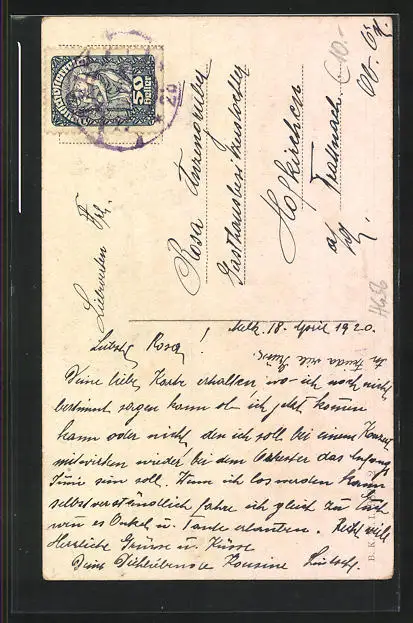 50
Heller
Frl.
Rosa
Gasthausbesitzerstochter
Hofkirchen
a/d. Trattnach
Ob. Öst.
€ 10.-
Melk, 18. April 1920.
Rosa!
viele
Deine liebe Karte erhalten, wo ich noch nicht
bestimmt sagen kann ob ich jetzt kommen
kann oder nicht, den ich soll bei einem Konzert
mitwirken wieder bei dem Orkester das Anfang
Juni sein soll. Wenn ich loswerden kann
selbstverständlich fahre ich gleich zu Euch
wen es Onkel u. Tante erlauben. Recht viele
Herzliche Grüsse u. Küsse
Deine Dichliebende Kousine